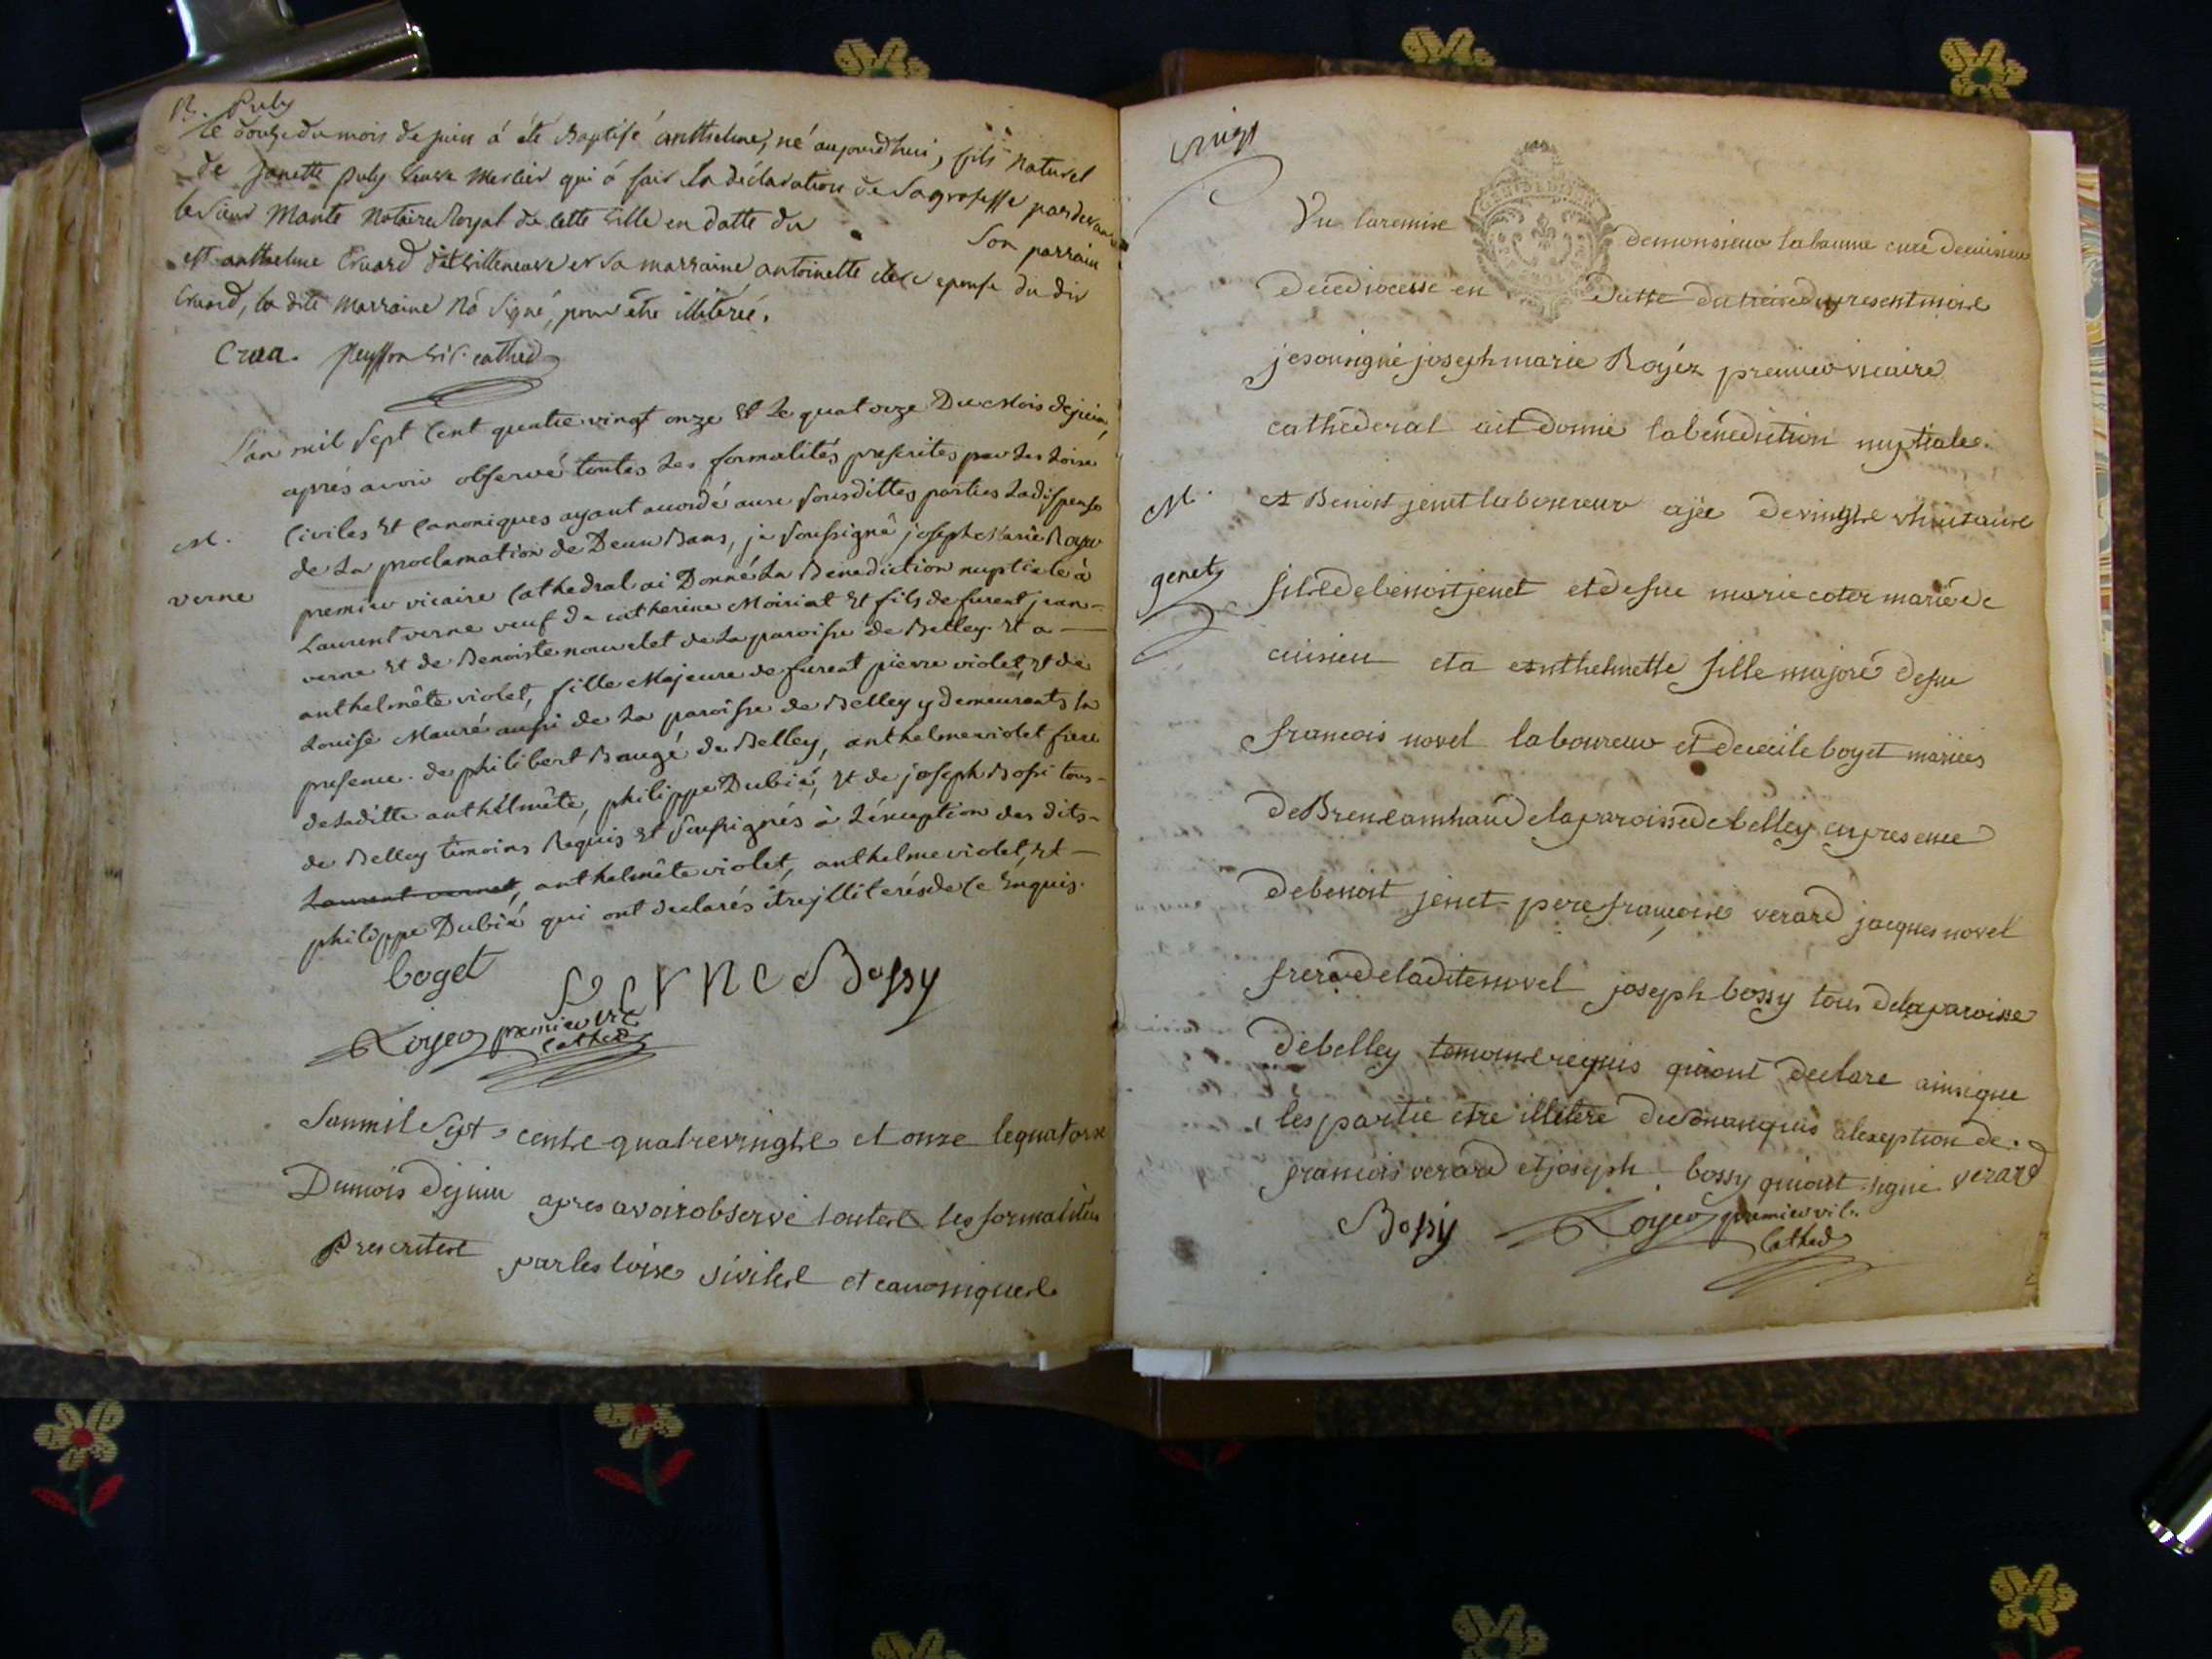 B. Puly
Le douze du mois de juin á été Baptisé anthelme, né aujourdhui, fils naturel
de janette puly veuve Mercier qui á fait la déclaration de sa grosesse pardevant
le Sieur Mante Notaire Royal de cette ville en datte du Son parrain
est anthelme Cruard dit villeneuve et sa marraine antoinette epouse du dit
Cruard, la dite marraine nó signé, pour être illiterée.
vic. cathed
L'an mil sept Cent quatre vingt onze Et Le quatorze Du Mois de juin,
aprés avoir observé toutes Les formalités prescrites par Les Loix
M. Civiles Et Canoniques ayant accordé aux sousdittes parties La dispense
de La proclamation de Deux Bans, je soussigné joseph Marie Royer
verne premier vicaire Cathedral ai Donné La Benediction nuptiale à
Laurent verne veuf de catherine Moiriat Et fils de furent jean
verne Et de Benoiste nouvelet de La paroisse de Belley. Et a
anthelmête violet, fille Majeure de furent pierre violet, Et de
Louise Mauré aussi de La paroisse de Belley y demeurants En
presence. de philibert Baugé de Belley, anthelme violet frere
de Laditte anthélmête, philippe Dubié, Et de joseph Bossi tous
de Belley témoins Requis Et soussignés à L'éxception des dits
Laurent vernet, anthelmête violet, anthelme violet, Et
philippe Dubié qui ont declarés être jlliterés de Ce Enquis.
boget
verne Bossy
Royer premier vic
Cathed
Lanmil Sept centse quatrevingtse et onze le quatorse
Dumois dejuin apres avoir observé toutese les formalités
Prescritese parles loise sivilese et canoniquese
vingt
Vu laremise demonsieur labaume curé de cuisieu
Dece diocesse en Datte du treize du present moise
je sousigné joseph marie Royér premier vicaire
cathéderal ait donné la bénédition nuptiale
M. a Benoist jenet laboureur ajée devingtse
genet filse de benoist jenet et de fue marie coter marié de
cuisieu et a anthelmette fille majore defue
francois novel laboureur et de cécile boyet mariés
de Brens delaparoisse de belley en presence
debenoist jenet pere francoise verard jacques novel
frere deladite novel joseph bossy tous delaparoisse
de belley temoinse requis quiont declare ainsique
les partie etre illetere de alexeption de
francois verard et joseph bossy quiont signé verard
Bossy Royer premier vic.
Cathed